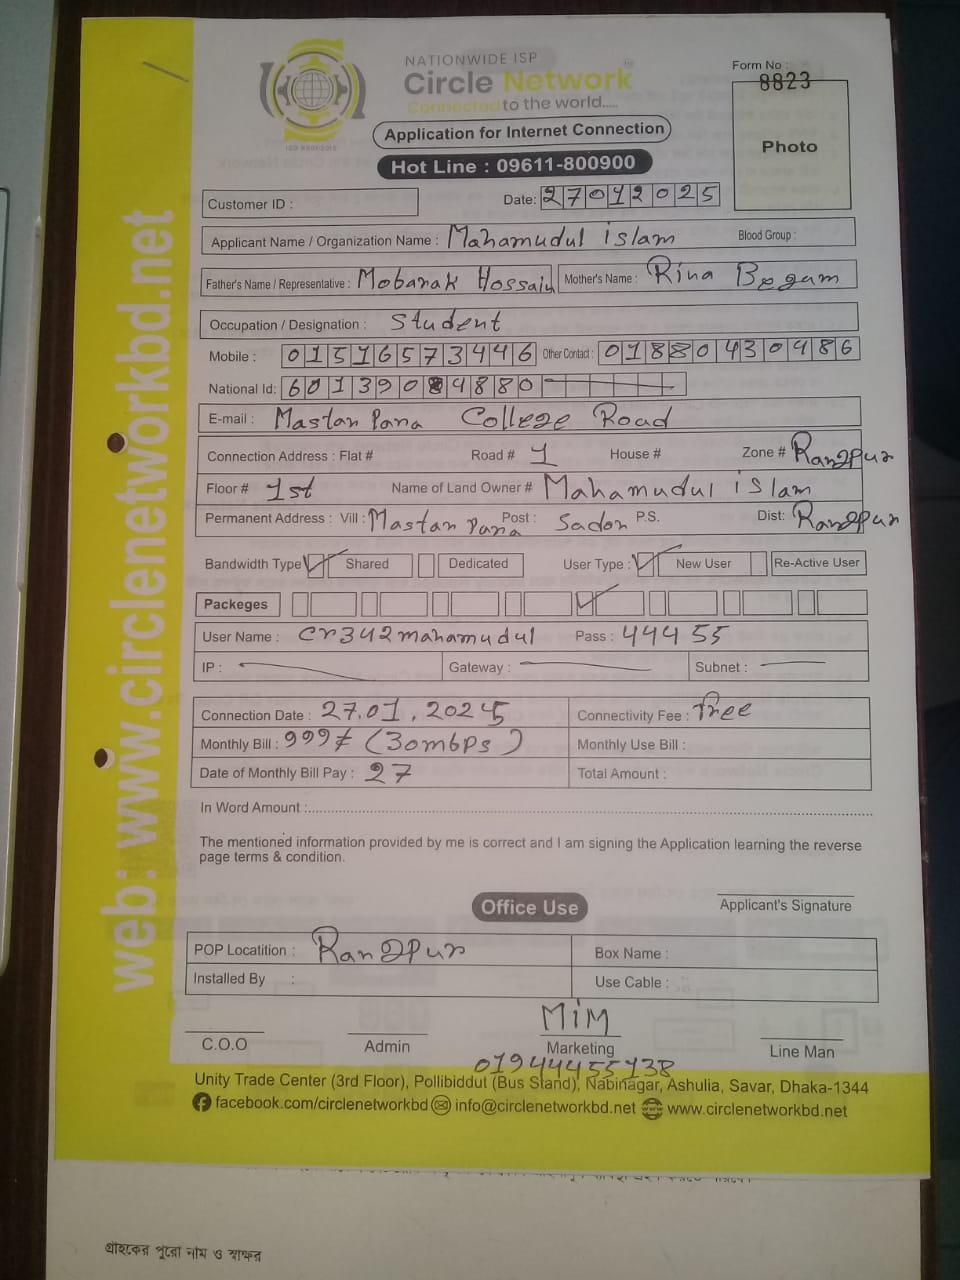 NATIONWIDE ISP
Circle Network
Connected to the world.....
Form No :
8823
Application for Internet Connection
Hot Line : 09611-800900
Photo
web: www.circlenetworkbd.net
Customer ID :
Date: 27012025
Applicant Name / Organization Name : Mahamudul islam Blood Group :
Father's Name / Representative : Mobarak Hossain Mother's Name : Rina Begam
Occupation / Designation : Student
Mobile : 01516573446 Other Contact : 01880430486
National Id: 6013904880
E-mail : Mastan Para College Road
Connection Address : Flat # Road # 1 House # Zone # Rangpur
Floor # 1st Name of Land Owner # Mahamudul islam
Permanent Address : Vill : Mastan para Post : Sador P.S. Dist: Rangpur
Bandwidth Type Shared Dedicated User Type : New User Re-Active User
Packeges
User Name : cr342mahamudul Pass : 44455
IP : Gateway : Subnet :
Connection Date : 27.01.2025 Connectivity Fee : free
Monthly Bill : 999/= (30mbps) Monthly Use Bill :
Date of Monthly Bill Pay : 27 Total Amount :
In Word Amount :
The mentioned information provided by me is correct and I am signing the Application learning the reverse
page terms & condition.
Applicant's Signature
Office Use
POP Locatition : Rangpur Box Name :
Installed By : Use Cable :
MiM
C.O.O Admin Marketing Line Man
01944455138
Unity Trade Center (3rd Floor), Pollibiddut (Bus Stand), Nabinagar, Ashulia, Savar, Dhaka-1344
facebook.com/circlenetworkbd info@circlenetworkbd.net www.circlenetworkbd.net
গ্রাহকের পুরো নাম ও স্বাক্ষর